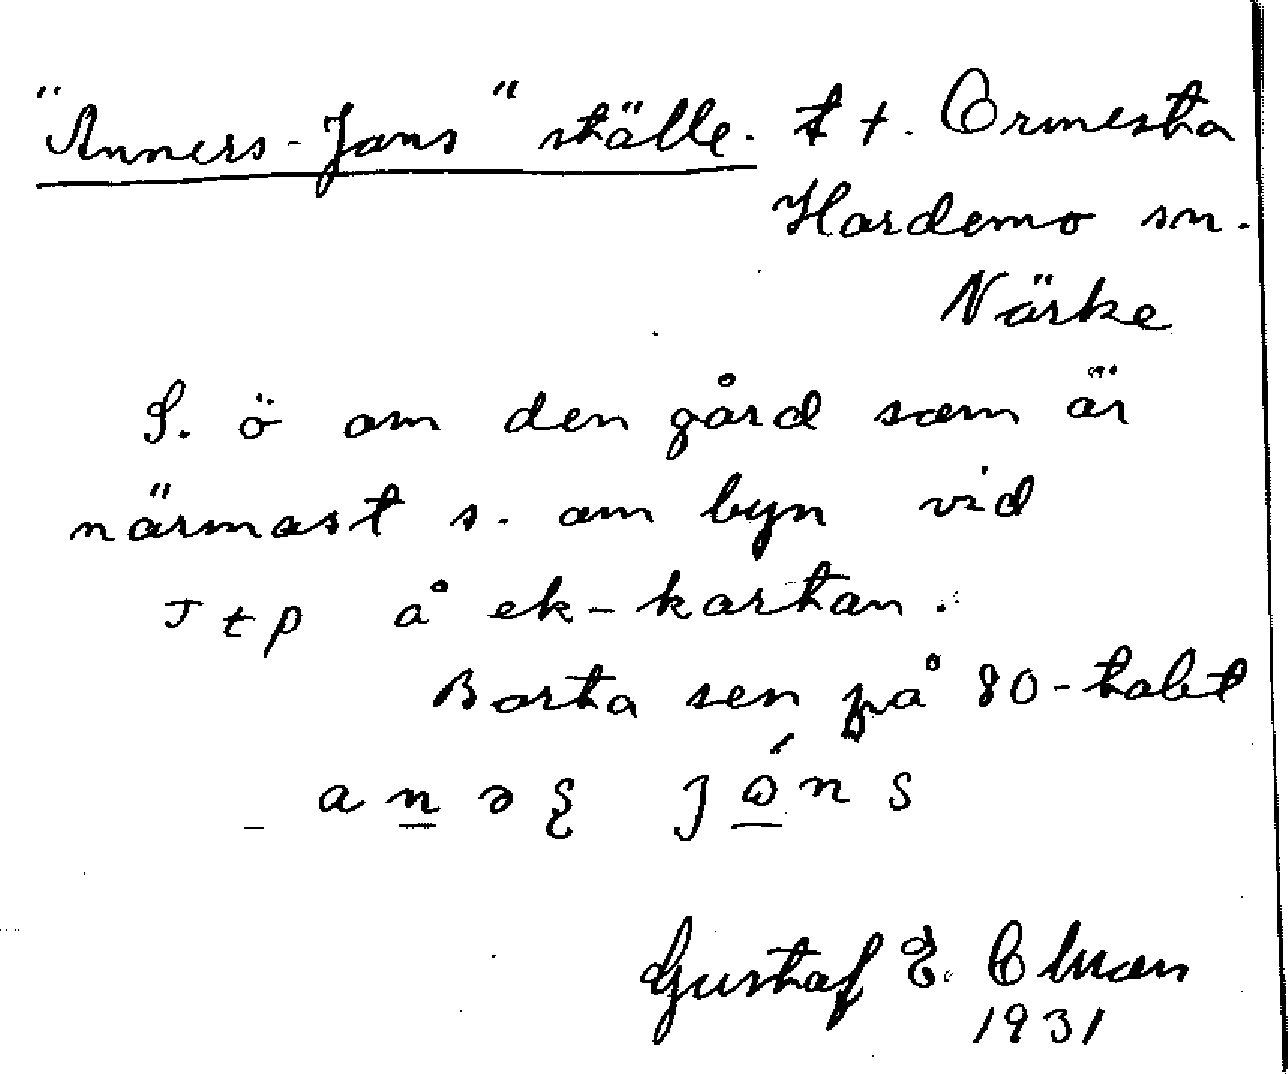 "Anners-Jans" ställe. t t. Ormesta
Hardemo sn.
Närke
S. ö om den gård som är
närmast s. om byn vid
J t p å ek-kartan.
Borta sen på 80-talet
Gustaf E. Olman
1931